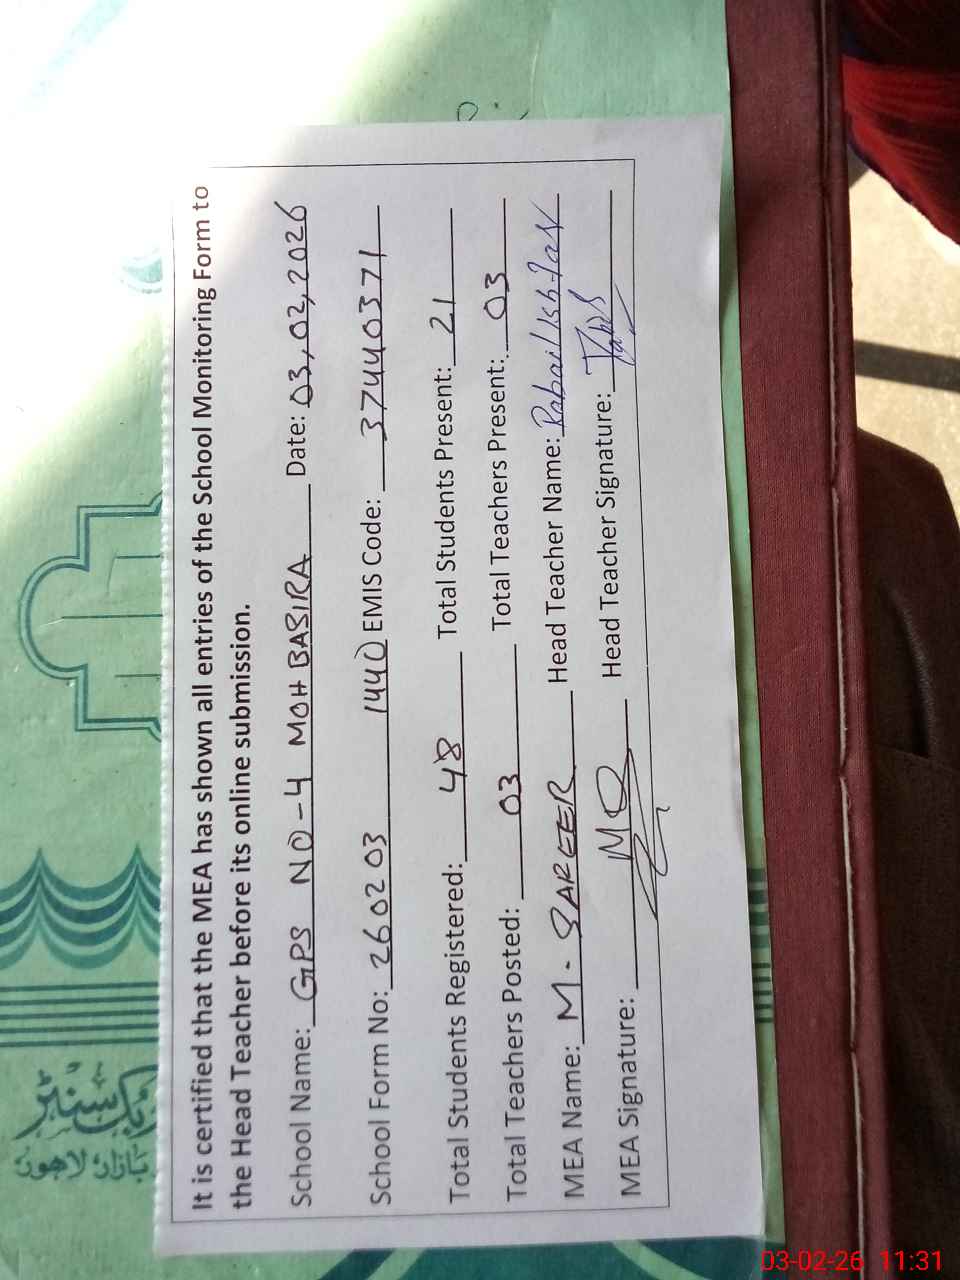 It is certified that the MEA has shown all entries of the School Monitoring Form to
the Head Teacher before its online submission.
School Name: GPS NO-4 MOH BASIRA Date: 03,02,2026
School Form No: 260203 1440 EMIS Code: 37440371
Total Students Registered: 48 Total Students Present: 21
Total Teachers Posted: 03 Total Teachers Present: 03
MEA Name: M. SAREER Head Teacher Name: Rabail Ishfaq
MEA Signature: Head Teacher Signature:
سنٹر
بازار لاہور
03-02-26 11:31